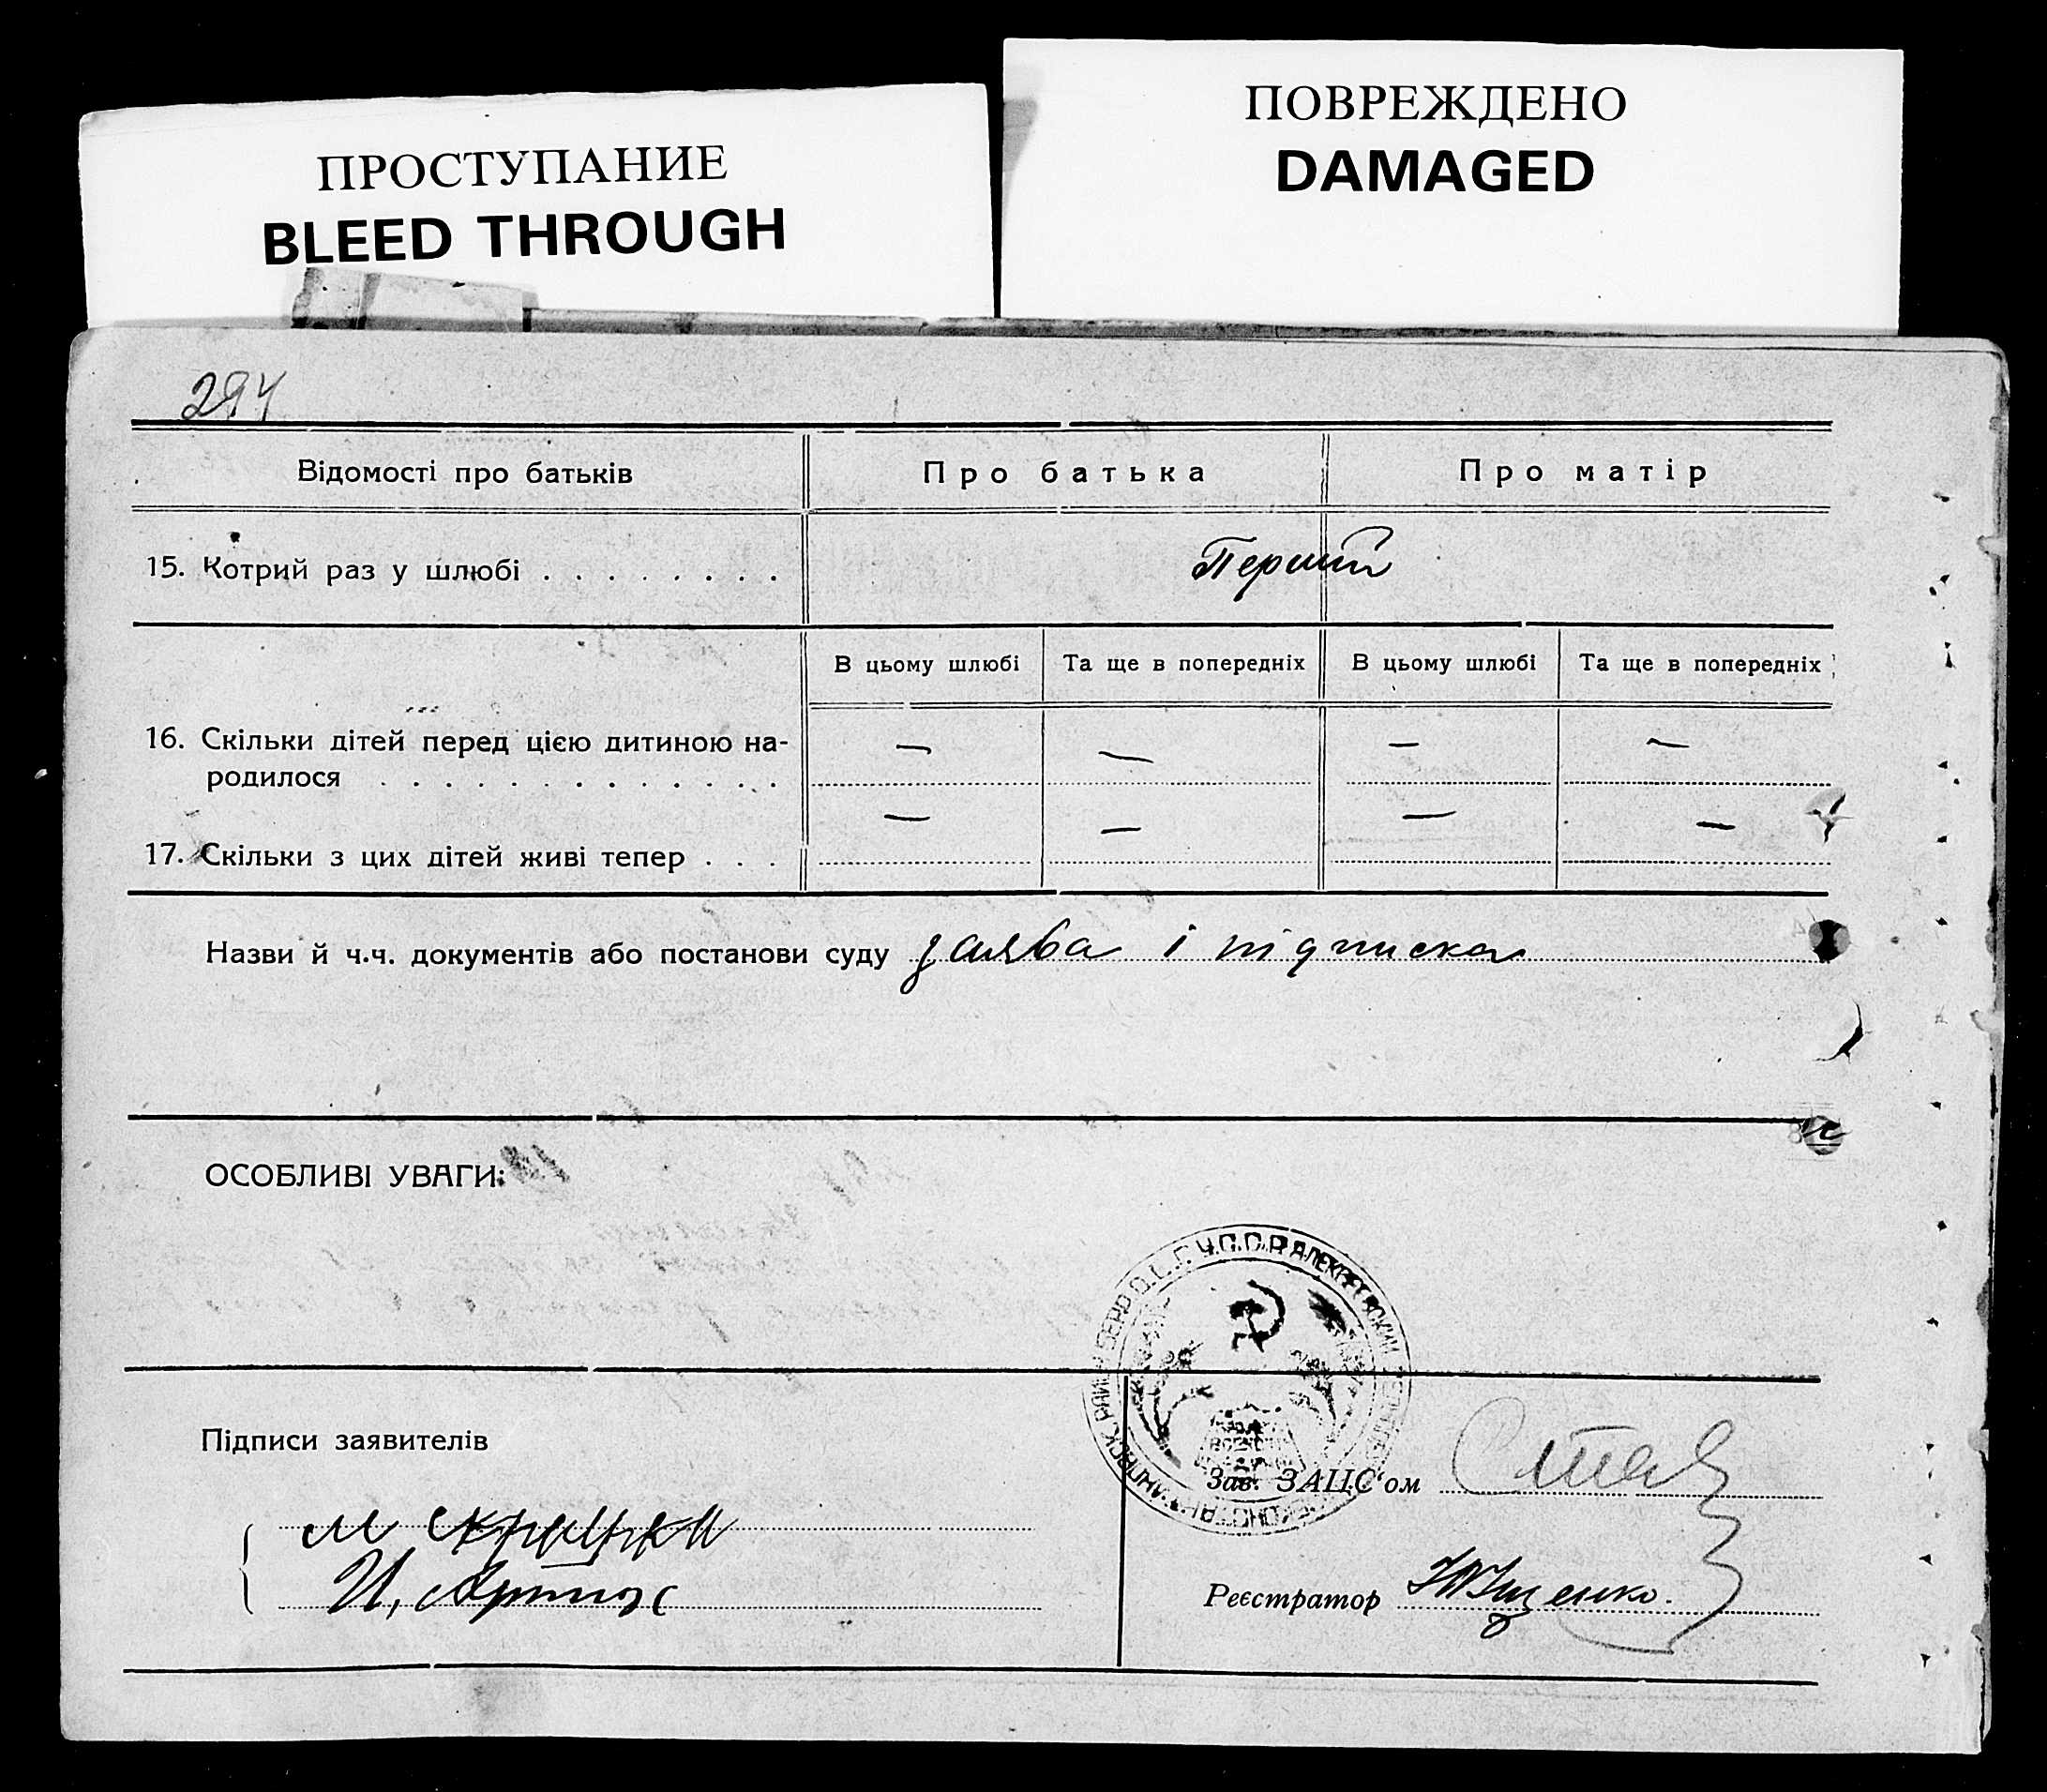 ПРОСТУПАНИЕ
BLEED THROUGH
ПОВРЕЖДЕНО
DAMAGED
294
Відомості про батьків
Про батька
Про матір
15. Котрий раз у шлюбі . . . . . . . .
Перший
В цьому шлюбі
Та ще в попередніх
В цьому шлюбі
Та ще в попередніх
16. Скільки дітей перед цією дитиною на-
родилося . . . . . . . . . . . . .
— — — —
17. Скільки з цих дітей живі тепер . . .
— — — —
Назви й ч.ч. документів або постанови суду заява і підписка
ОСОБЛИВІ УВАГИ:
У.С.С.Р.
Підписи заявителів
Зав. ЗАЦС'ом
М
И.
Реєстратор